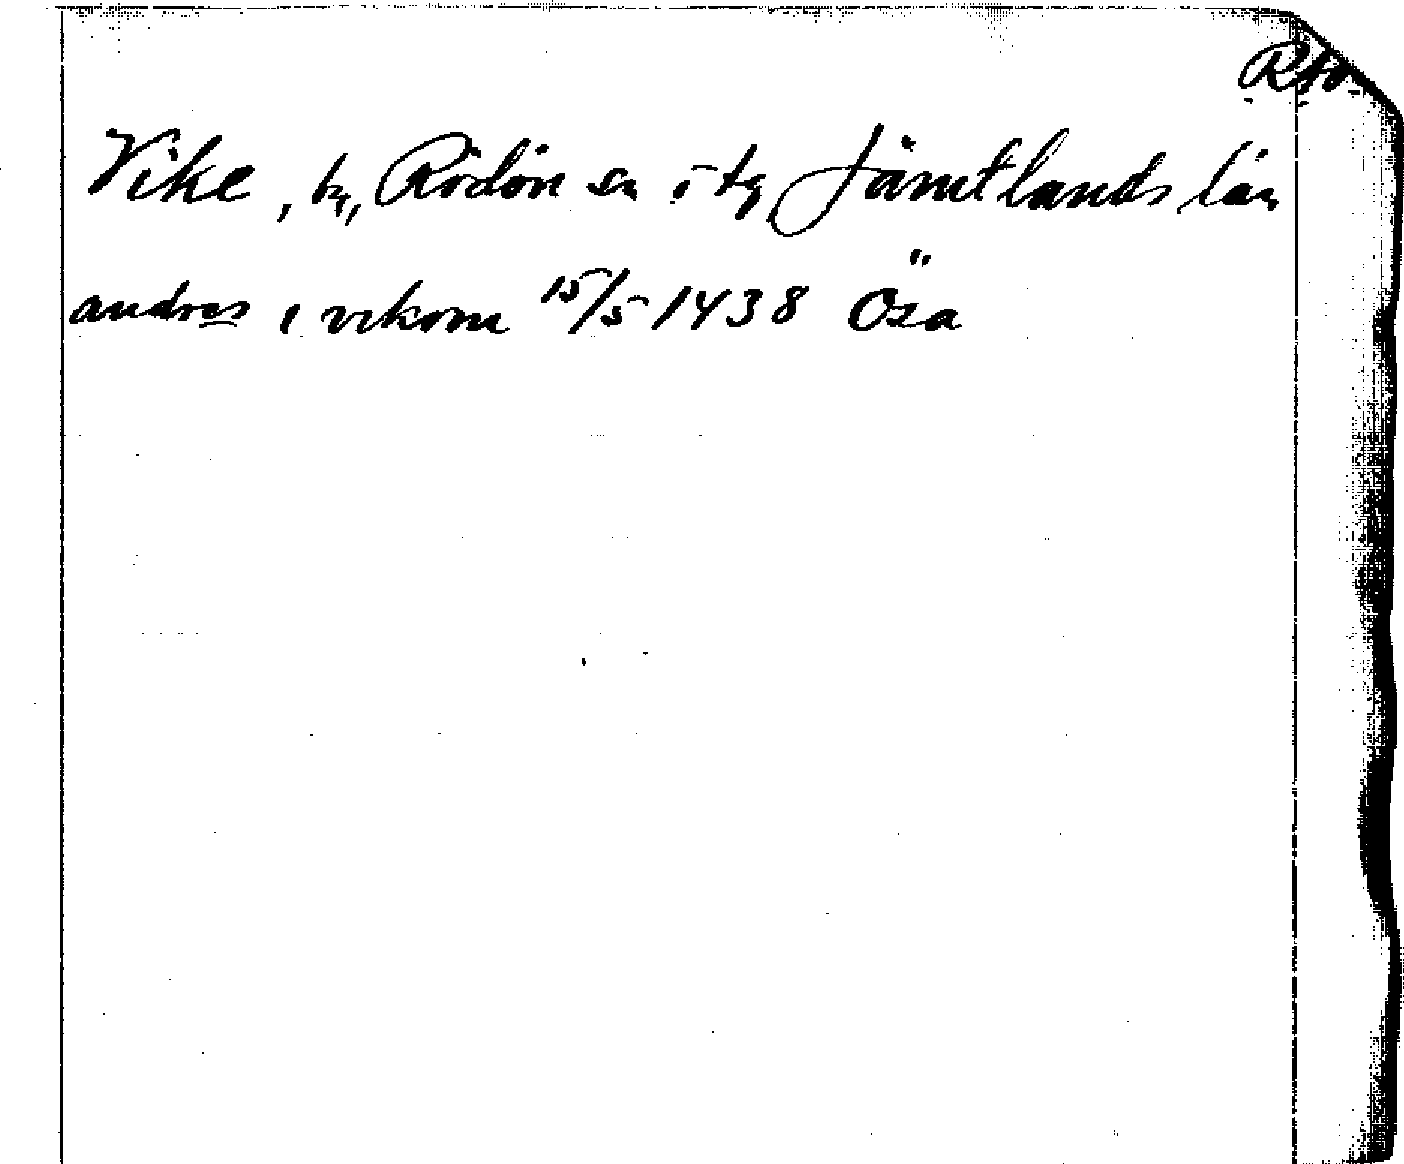 Vike, by, Rödön sn ö tg Jämtlands län
andres i vikom 15/5 1438 Öza